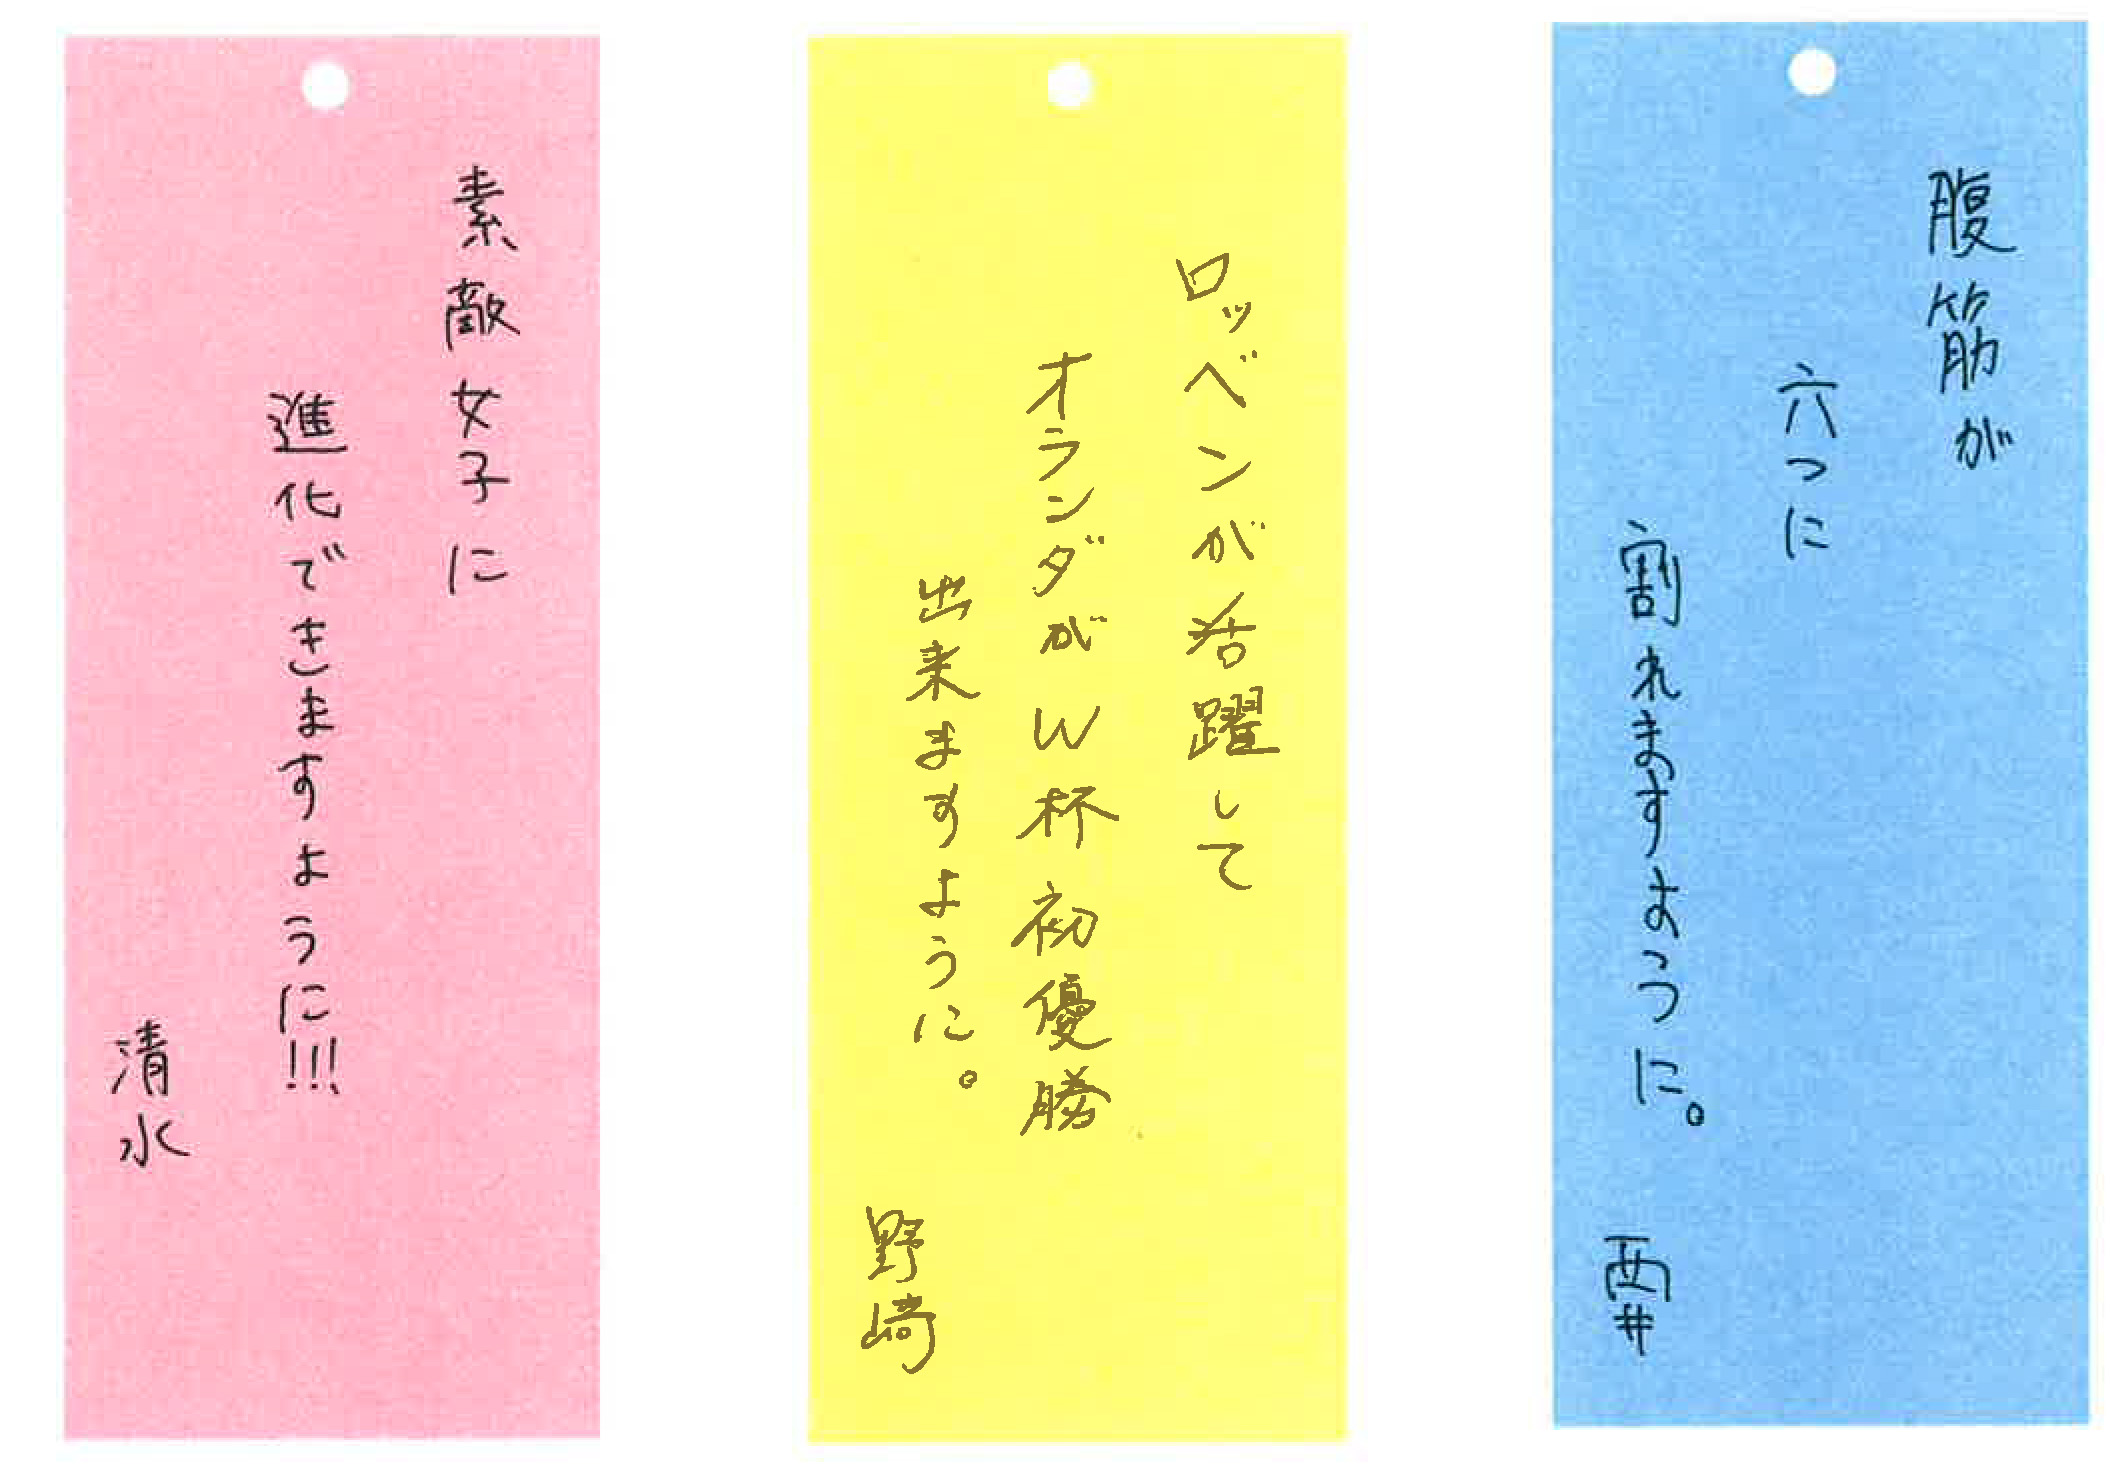 腹筋が
六つに
割れますように。
西井
ロッベンが活躍して
オランダがW杯初優勝
出来ますように。
野崎
素敵女子に
進化できますように!!!
清水